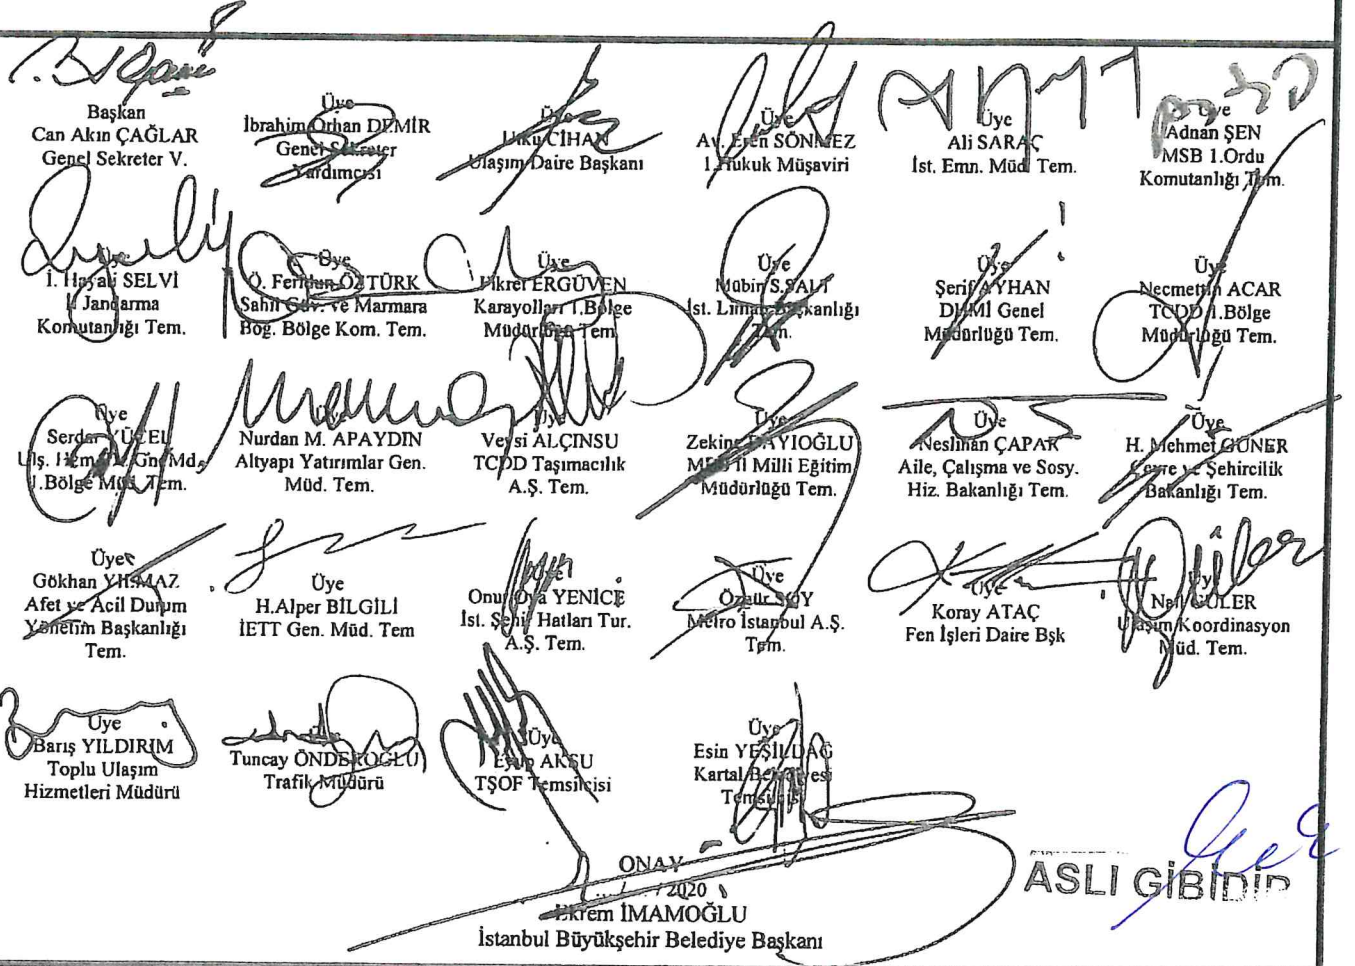 Başkan
Can Akın ÇAĞLAR
Genel Sekreter V.
Üye
İbrahim Orhan DEMİR
Genel Sekreter
Yardımcısı
Üye
Utku CİHAN
Ulaşım Daire Başkanı
Üye
Av. Eren SÖNMEZ
1.Hukuk Müşaviri
Üye
Ali SARAÇ
İst. Emn. Müd. Tem.
Üye
Adnan ŞEN
MSB 1.Ordu
Komutanlığı Tem.
Üye
İ. Hayali SELVİ
İl Jandarma
Komutanlığı Tem.
Üye
Ö. Feridun ÖZTÜRK
Sahil Güv. ve Marmara
Boğ. Bölge Kom. Tem.
Üye
Fikret ERGÜVEN
Karayolları 1.Bölge
Müdürlüğü Tem.
Üye
Mübin S.
İst. Liman Başkanlığı
Tem.
Üye
Şerif AYHAN
DHMİ Genel
Müdürlüğü Tem.
Üye
Necmettin ACAR
TCDD 1.Bölge
Müdürlüğü Tem.
Üye
Serdar YÜCEL
Ulş. Hizm. Gn. Md.
1.Bölge Müd. Tem.
Üye
Nurdan M. APAYDIN
Altyapı Yatırımlar Gen.
Müd. Tem.
Üye
Veysi ALÇINSU
TCDD Taşımacılık
A.Ş. Tem.
Üye
Zekine DAYIOĞLU
MEB İl Milli Eğitim
Müdürlüğü Tem.
Üye
Neslihan ÇAPAR
Aile, Çalışma ve Sosy.
Hiz. Bakanlığı Tem.
Üye
H. Mehmet GÜNER
Çevre ve Şehircilik
Bakanlığı Tem.
Üye
Gökhan YILMAZ
Afet ve Acil Durum
Yönetim Başkanlığı
Tem.
Üye
H.Alper BİLGİLİ
İETT Gen. Müd. Tem
Üye
Onur Oya YENİCE
İst. Şehir Hatları Tur.
A.Ş. Tem.
Üye
Özgür SOY
Metro İstanbul A.Ş.
Tem.
Üye
Koray ATAÇ
Fen İşleri Daire Bşk
Üye
Nail GÜLER
Ulaşım Koordinasyon
Müd. Tem.
Üye
Barış YILDIRIM
Toplu Ulaşım
Hizmetleri Müdürü
Üye
Tuncay ÖNDEROĞLU
Trafik Müdürü
Üye
Eyüp AKSU
TŞOF Temsilcisi
Üye
Esin YEŞİLDAĞ
Kartal Belediyesi
Temsilcisi
ONAY
.../.../2020
Ekrem İMAMOĞLU
İstanbul Büyükşehir Belediye Başkanı
ASLI GİBİDİR